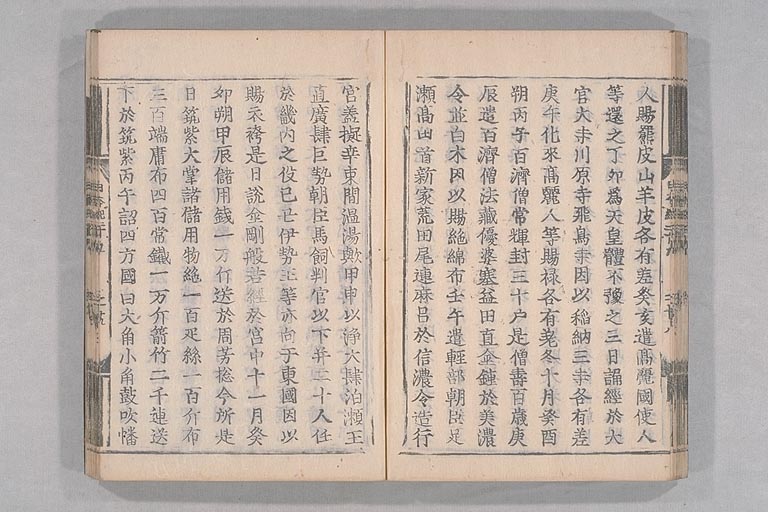 人賜羆皮山羊皮各有差癸亥遣高麗國使人
等還之丁卯爲天皇體不豫之三日誦經於大
官大寺川原寺飛鳥寺因以稻納三寺各有差
庚午化來高麗人等賜祿各有差冬十月癸酉
朔丙子百濟僧常輝封三十戸是僧壽百歳庚
辰遣百濟僧法藏優婆塞益田直金鍾於美濃
令並白朮因以賜絁綿布壬午遣輕部朝臣足
瀬高田首新家荒田尾連麻呂於信濃令造行
宮蓋擬幸束間温湯歟甲申以浄大肆泊瀬王
直廣肆巨勢朝臣馬飼判官以下并二十人任
於畿内之役己丑伊勢王等亦向于東國因以
賜衣袴是日説金剛般若經於宮中十一月癸
卯朔甲辰儲用鐵一万斤送於周芳捴令所是
日筑紫大宰諸儲用物絁一百疋絲一百斤布
三百端庸布四百常鐵一万斤箭竹二千連送
下於筑紫丙午詔四方國曰大角小角鼓吹幡